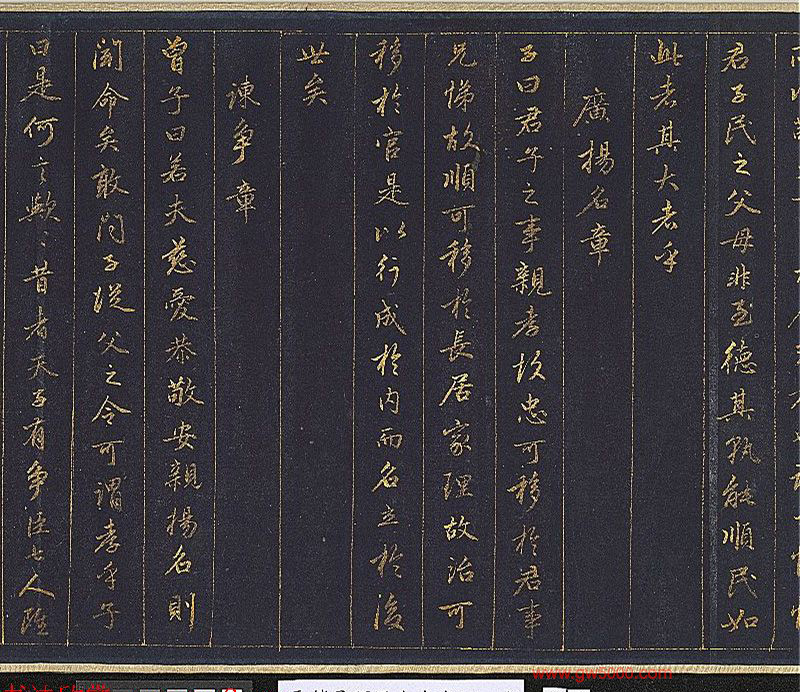 君子民之父母非至德其孰能順民如
此者其大者乎
廣揚名章
子曰君子之事親孝故忠可移於君事
兄悌故順可移於長居家理故治可
移於官是以行成於内而名立於後
世矣
諫争章
曾子曰若夫慈愛恭敬安親揚名則
聞命矣敢問子從父之令可謂孝乎子
曰是何言歟〻昔者天子有争臣七人雖
www.gw5000.com